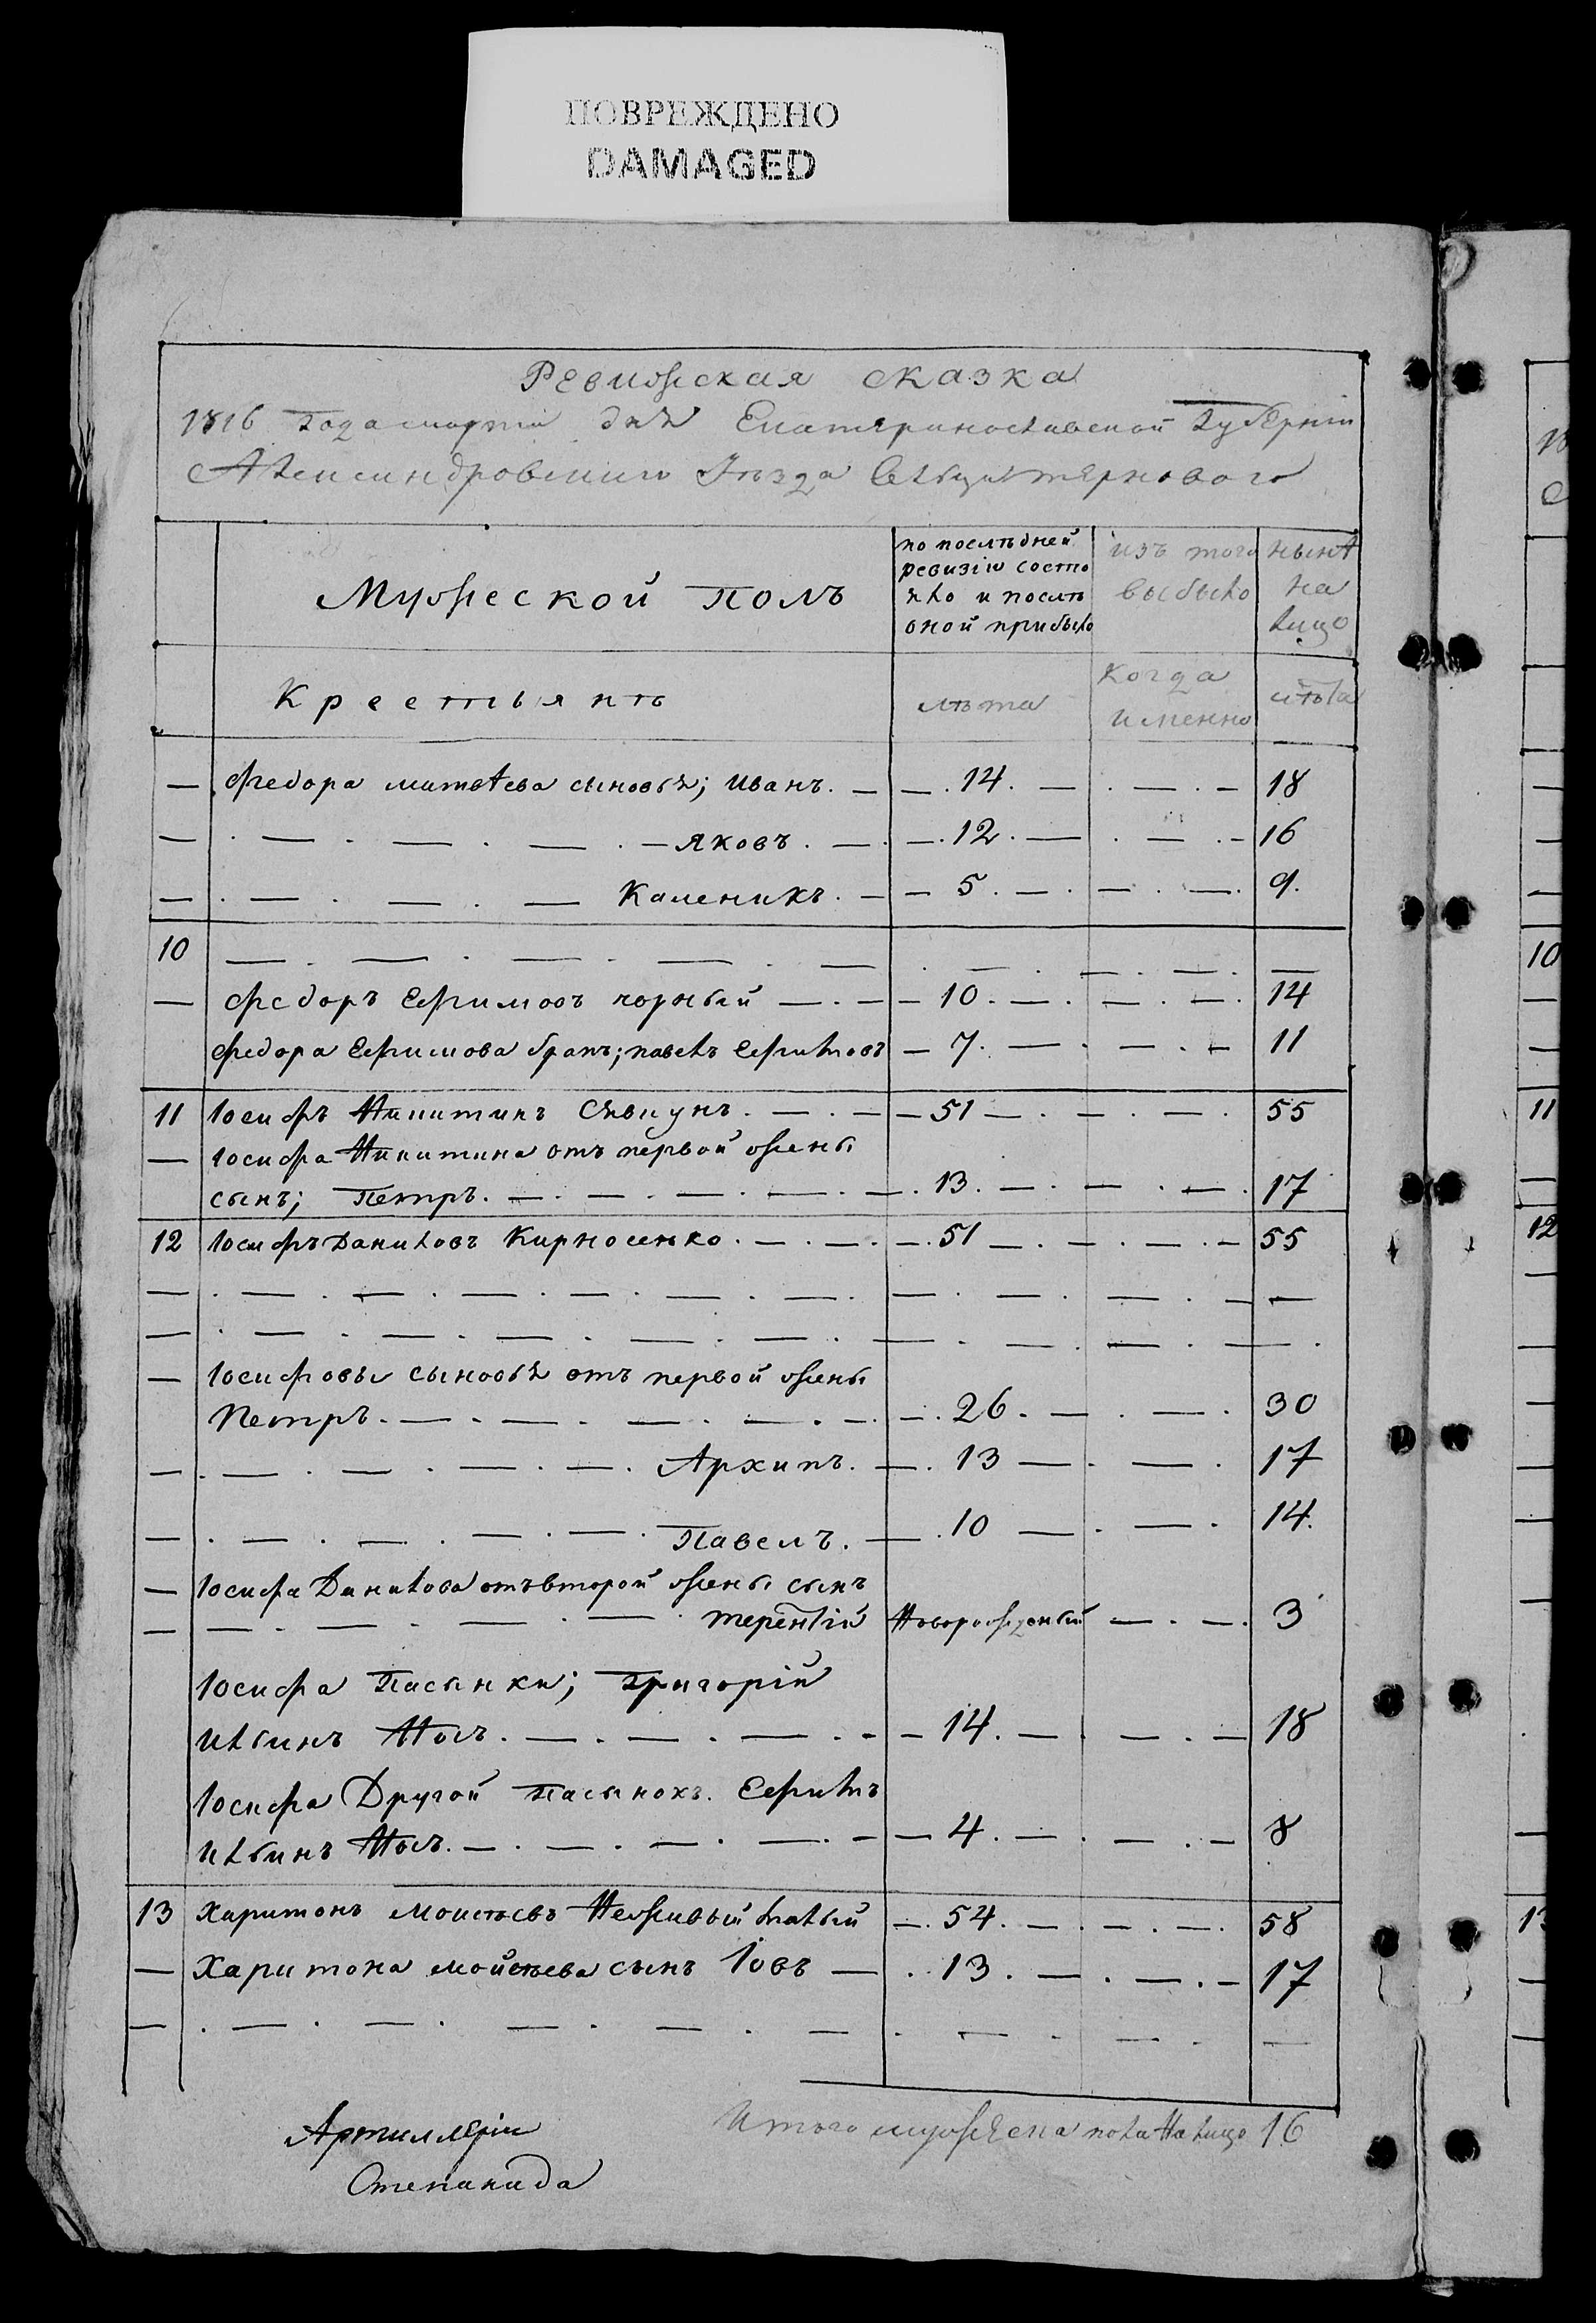 ПОВРЕЖДЕНО
DAMAGED
Ревижская сказка
1816 Года марта дня Екатеринославской Губерніи
Александровскаго Уѣзда Сельца терноваго
Мужеской полъ
по послѣдней ревизіи состояло и послѣ оной прибыло
изъ того выбыло
нынѣ на лицо
Крестьянѣ
лѣта
Когда именно
лѣта
— Федора матвѣева сыновья; Иванъ. — 14. — 18
— Яковъ. — 12. — 16
— Каленикъ. — 5. — 9.
10 —
— Федоръ Ефимовъ чорный — 10. — 14
Федора Ефимова братъ; павелъ Ефимовъ — 7. — 11
11 Іосифъ Никитинъ — 51 — 55
— Іосифа Никитина отъ первой жены
сынъ; Петръ. — 13. — 17
12 Іосифъ Даниловъ Кирносенко. — 51 — 55
—
—
— Іосифовы сыновья отъ первой жены
Петръ. — 26. — 30
— Архипъ. — 13 — 17
— Павелъ. — 10 — 14.
— Іосифа Данилова отъ второй жены сынъ
— терентій Новорожденый — 3
Іосифа Пасынки; Григорій
Ильинъ — 14. — 18
Іосифа Другой Пасынокъ. Ефимъ
Ильинъ — 4. — 8
13 Харитонъ Моисѣевъ Неживый малый — 54. — 58
— Харитона мойсѣева сынъ Іовъ — 13. — 17
—
Итого мужеска пола На лицо 16
Артиллеріи
Степанида